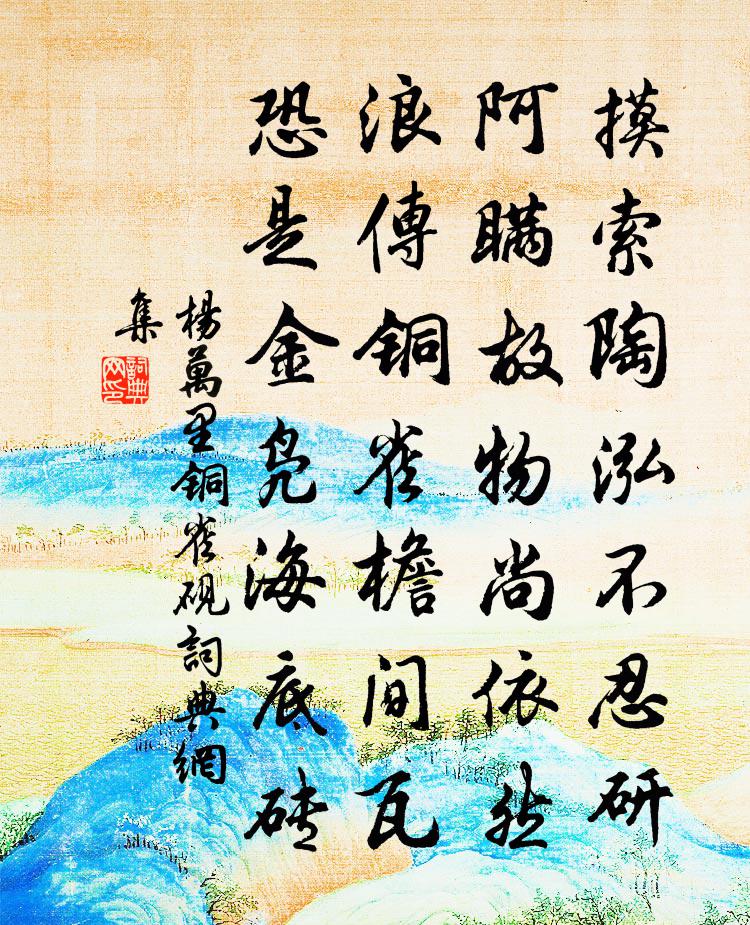 摸索陶泓不忍研
阿瞞故物尚依然
浪傳铜雀檐間瓦
恐是金凫海底砖
楊萬里铜雀硯詞典網
集
詞典
网印